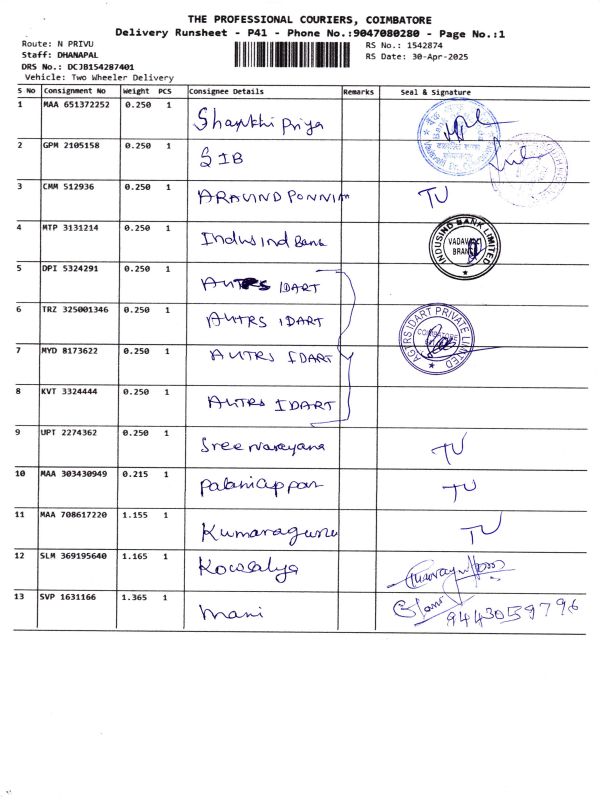 THE PROFESSIONAL COURIERS, COIMBATORE
Delivery Runsheet - P41 - Phone No.:9047080280 - Page No.:1
Route: N PRIVU
RS No.: 1542874
Staff: DHANAPAL
RS Date: 30-Apr-2025
DRS No.: DCJB154287401
Vehicle: Two Wheeler Delivery
S No Consignment No Weight PCS Consignee Details Remarks Seal & Signature
1 MAA 651372252 0.250 1 Shankhi Priya
2 GPM 2105158 0.250 1 SIB
3 CMM 512936 0.250 1 ARAVIND PONNIA TU
4 MTP 3131214 0.250 1 Indusind Bank INDUSIND BANK LIMITED VADAVALLI BRANCH
5 DPI 5324291 0.250 1 AUTRS IDART
6 TRZ 325001346 0.250 1 AUTRS IDART AGTRS IDART PRIVATE LIMITED COIMBATORE
7 MYD 8173622 0.250 1 AUTRS IDART
8 KVT 3324444 0.250 1 AUTRS IDART
9 UPT 2274362 0.250 1 Sree Narayana TU
10 MAA 303430949 0.215 1 Palaniappan TU
11 MAA 708617220 1.155 1 Kumaraguru TU
12 SLM 369195640 1.165 1 Kowsalya
13 SVP 1631166 1.365 1 Mani 9443059796